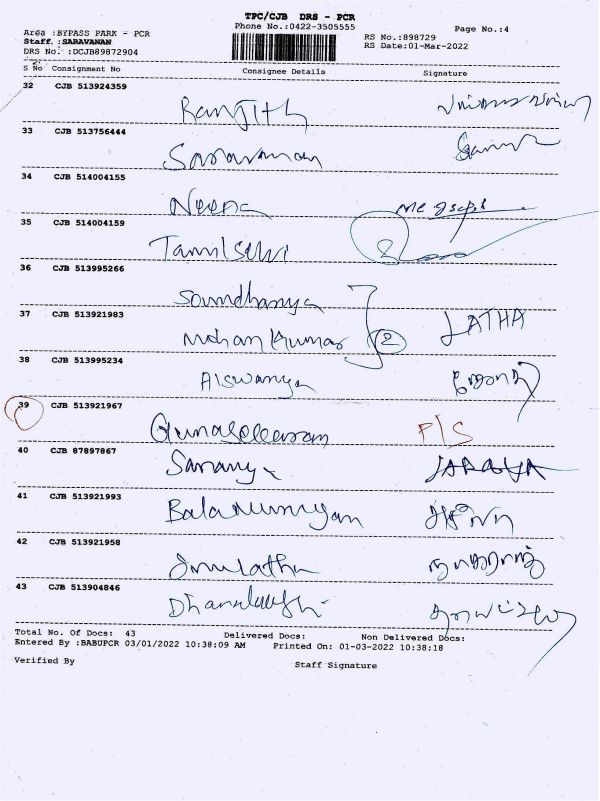 TPC/CJB DRS - PCR
Area :BYPASS PARK - PCR Phone No.:0422-3505555 Page No.:4
Staff. :SARAVANAN RS No.:898729
DRS No. :DCJB89872904 RS Date:01-Mar-2022
S No Consignment No Consignee Details Signature
32 CJB 513924359
Ranjith
33 CJB 513756444
Saravanan
34 CJB 514004155
Neena
35 CJB 514004159
Tamilselvi
36 CJB 513995266
Soundhanya
37 CJB 513921983
Mohan Kumar 2 LATHA
38 CJB 513995234
Aiswarya
39 CJB 513921967
Gunasekaran P/S
40 CJB 87897867
Saranya
41 CJB 513921993
Balamurugan
42 CJB 513921958
43 CJB 513904846
Total No. Of Docs: 43 Delivered Docs: Non Delivered Docs:
Entered By :BABUPCR 03/01/2022 10:38:09 AM Printed On: 01-03-2022 10:38:18
Verified By Staff Signature